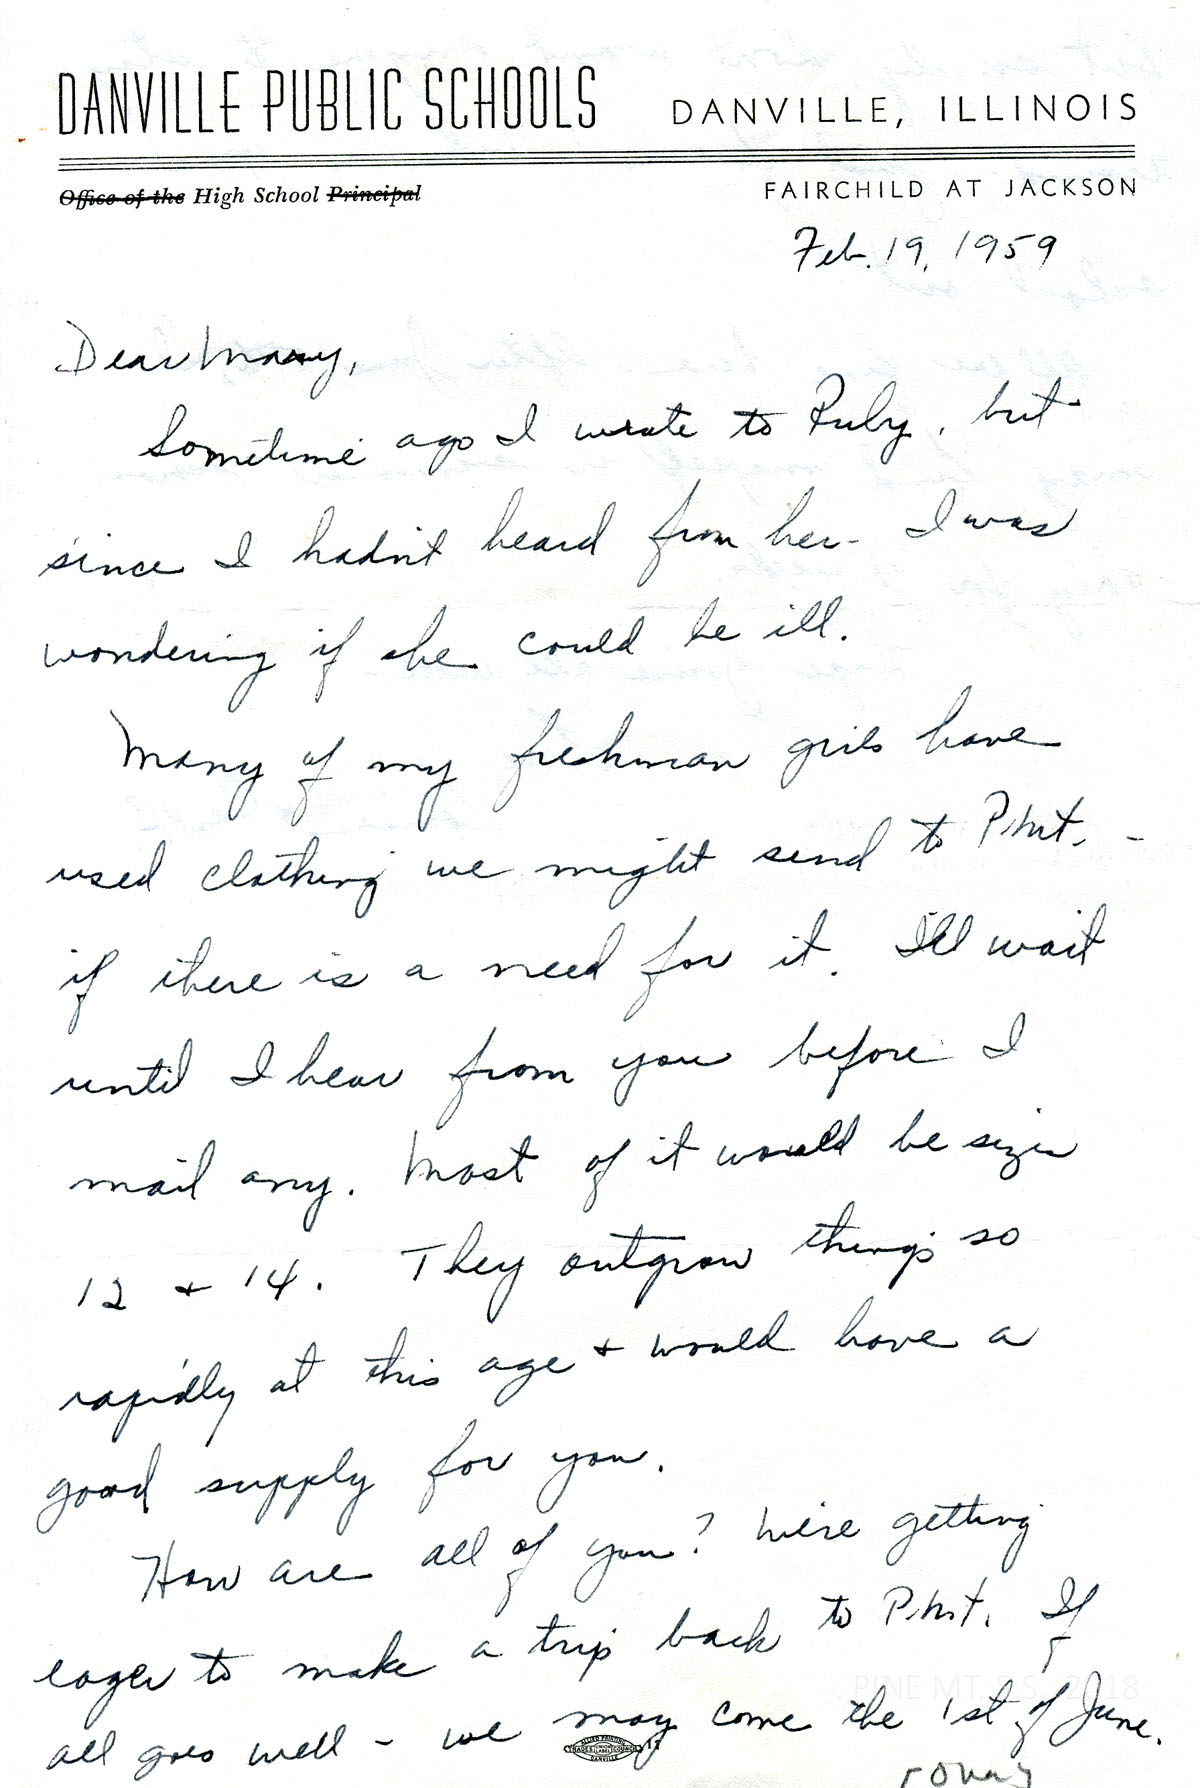 DANVILLE PUBLIC SCHOOLS DANVILLE, ILLINOIS
Office of the High School Principal FAIRCHILD AT JACKSON
Feb. 19, 1959
Dear Mary,
Sometime ago I wrote to Ruby, but
since I hadn't heard from her - I was
wondering if she could be ill.
Many of my freshman girls have
used clothing we might send to P.Mt. -
if there is a need for it. I'll wait
until I hear from you before I
mail any. Most of it would be sizes
12 + 14. They outgrow things so
rapidly at this age + would have a
good supply for you.
How are all of you? We're getting
eager to make a trip back to P.Mt. If
all goes well - we may come the 1st of June.
PINE MT. S.S. 2018
ALLIED PRINTING
TRADES UNION LABEL COUNCIL
DANVILLE
12